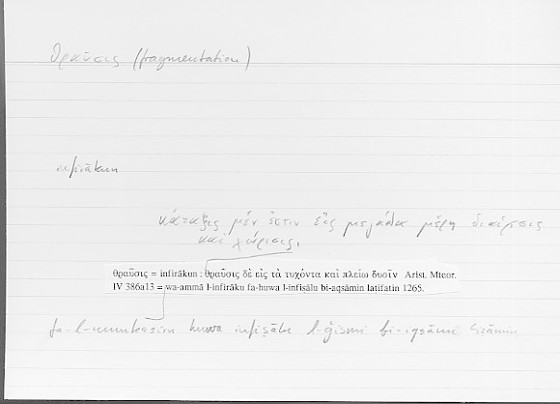 θραῦσις (fragmentation)
infirākun
κάταξις μέν ἐστιν εἰς μεγάλα μέρη διαίρεσις
καὶ χώρισις,
θραῦσις = infirākun : θραῦσις δὲ εἰς τὰ τυχόντα καὶ πλείω δυοῖν Arist. Meteor.
IV 386a13 = wa-ammā l-infirāku fa-huwa l-infiṣālu bi-aqsāmin laṭīfatin 1265.
huwa infiṣālu l-ǧismi